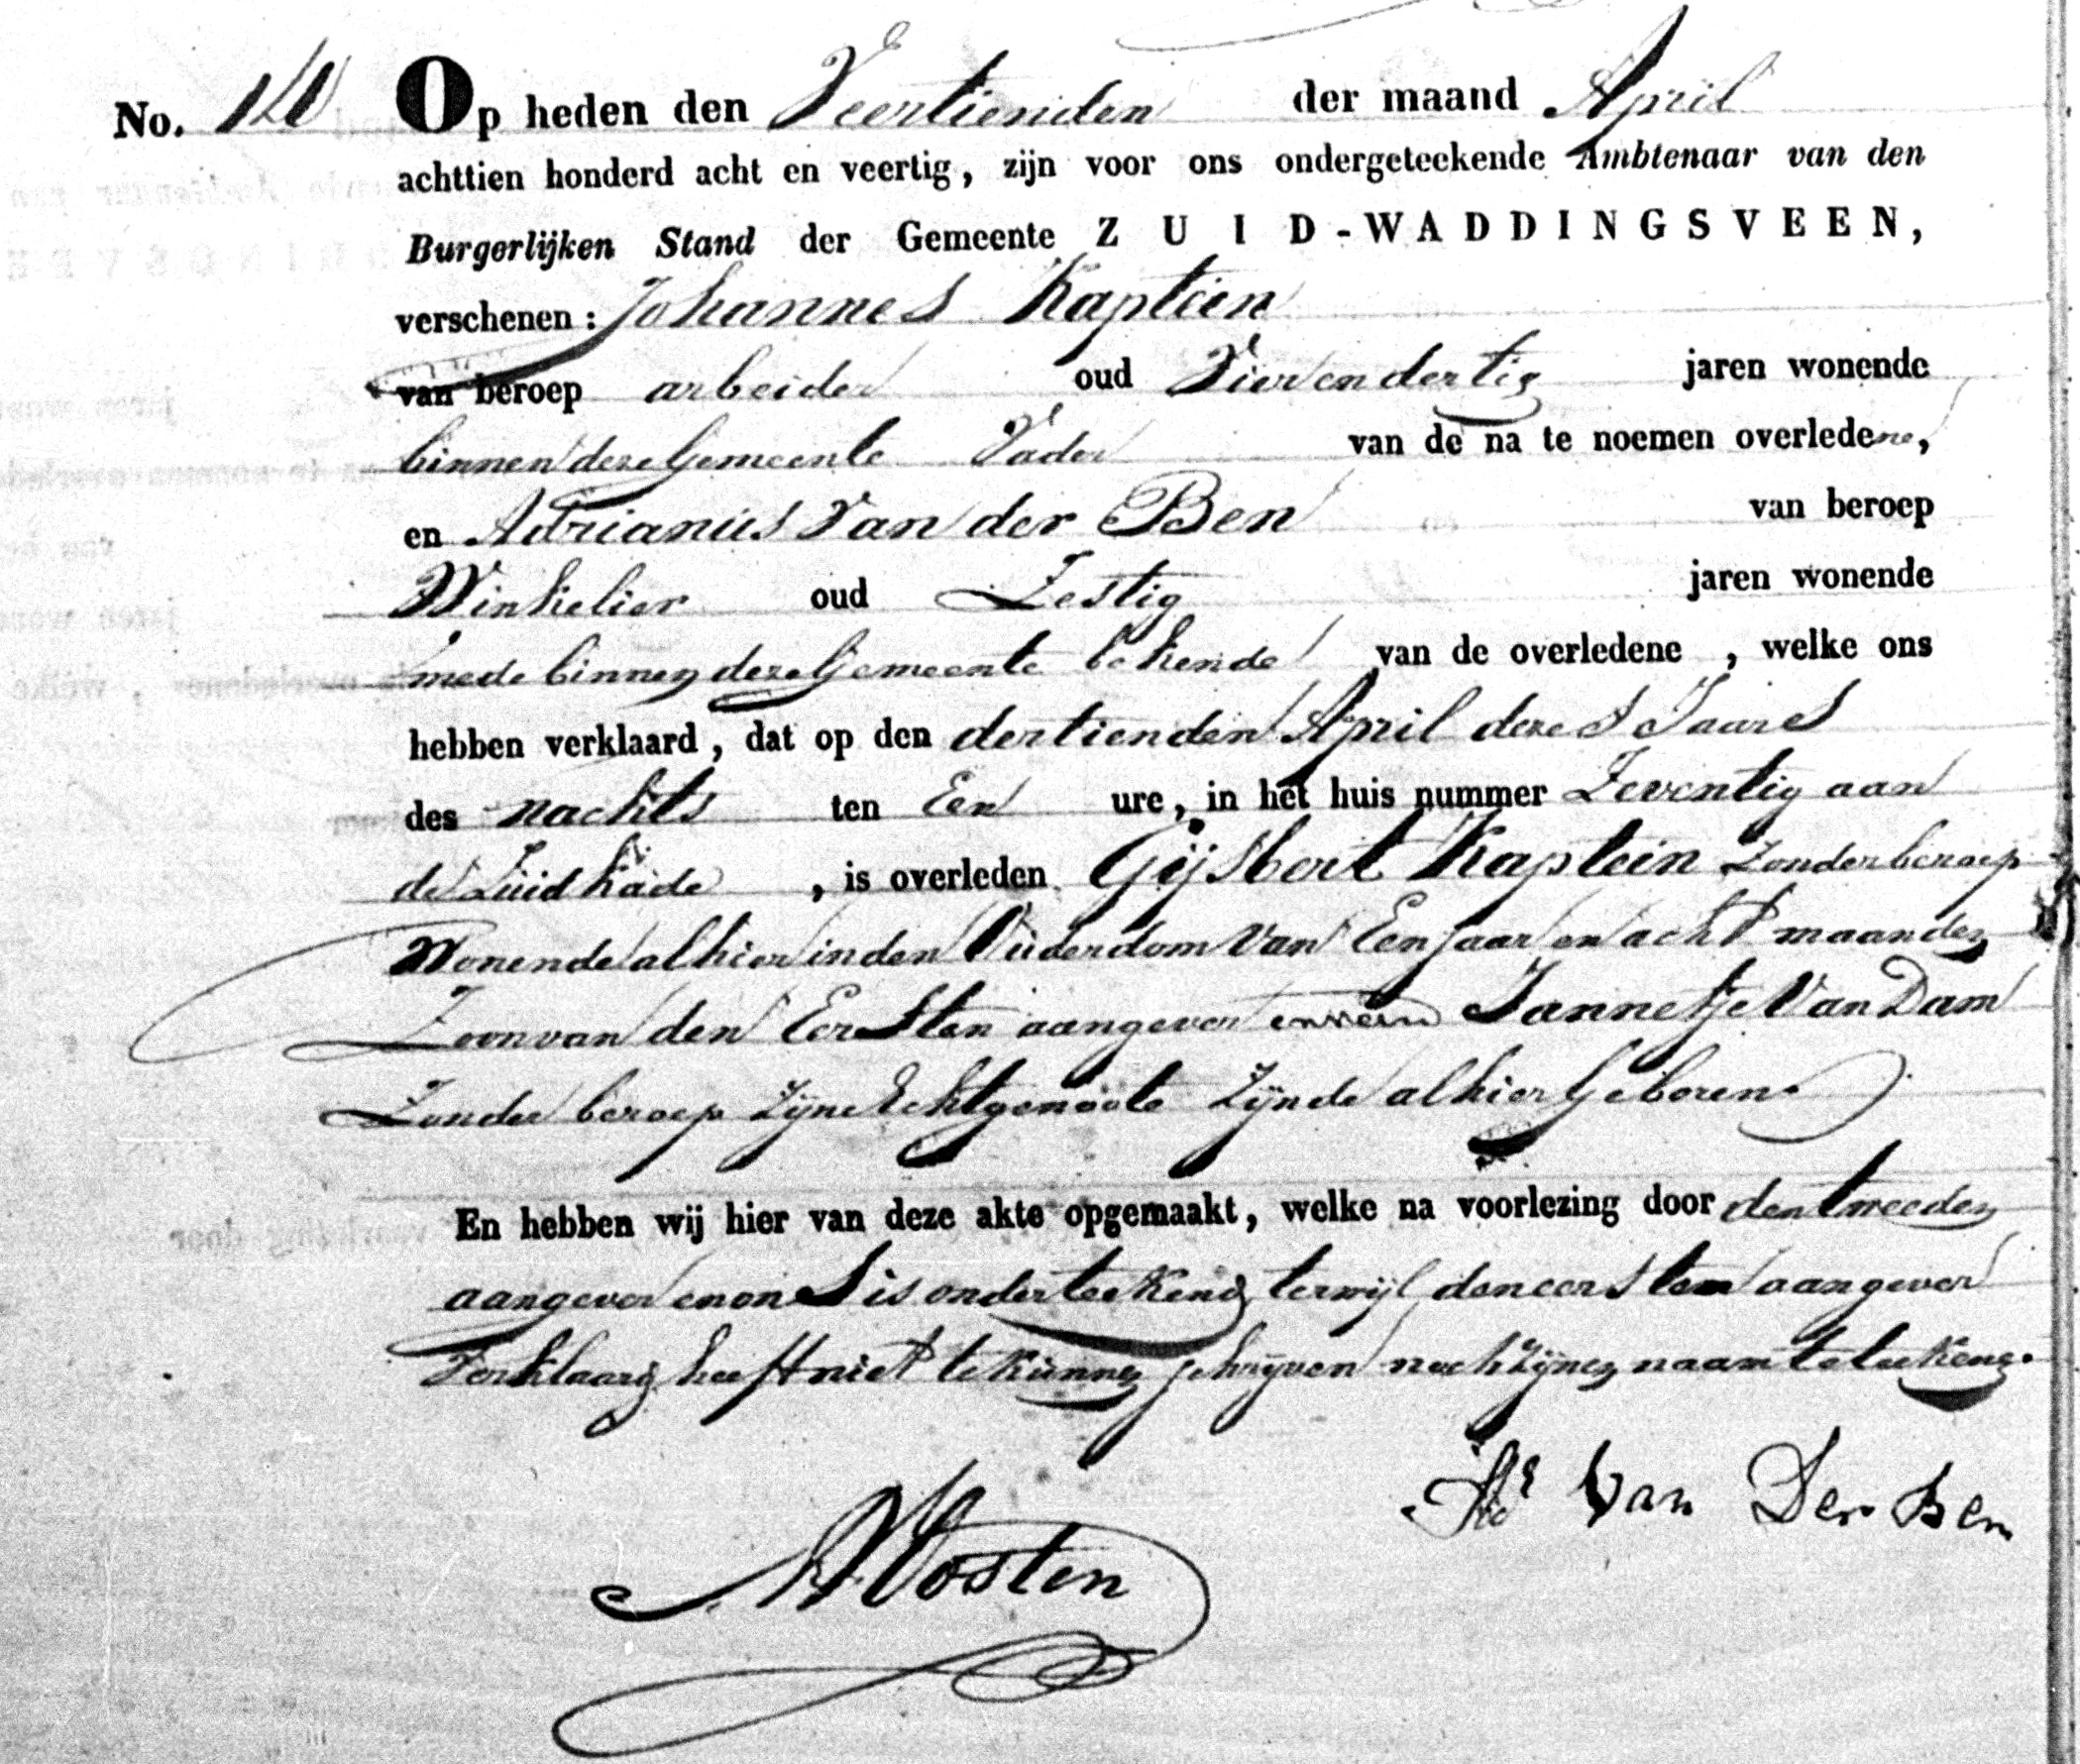 No. 140 Op heden den Veertienden der maand April
achttien honderd acht en veertig, zijn voor ons ondergeteekende Ambtenaar van den
Burgerlijken Stand der Gemeente ZUID-WADDINGSVEEN,
verschenen: Johannes Kaptein
van beroep arbeider oud Vierendertig jaren wonende
binnen deze Gemeente Vader van de na te noemen overledene,
en Adrianus Van der Ben van beroep
Winkelier oud Zestig jaren wonende
mede binnen deze Gemeente bekende van de overledene, welke ons
hebben verklaard, dat op den dertienden April dezes Jaars
des nachts ten Een ure, in het huis nummer Zeventig aan
de Zuidkade, is overleden Gijsbert Kaptein Zonder beroep
Wonende alhier in den Ouderdom Van Een jaar en acht maanden
Zoon van den Eersten aangever en van Jannetje Van Dam
Zonder beroep Zijne Echtgenoote Zijnde alhier Geboren.
En hebben wij hier van deze akte opgemaakt, welke na voorlezing door den tweeden
aangever en ons is onderteekend, terwijl den eersten aangever
Verklaard heeft niet te kunnen schrijven noch Zijnen naam te teekenen.
Van Der Ben
Mosten